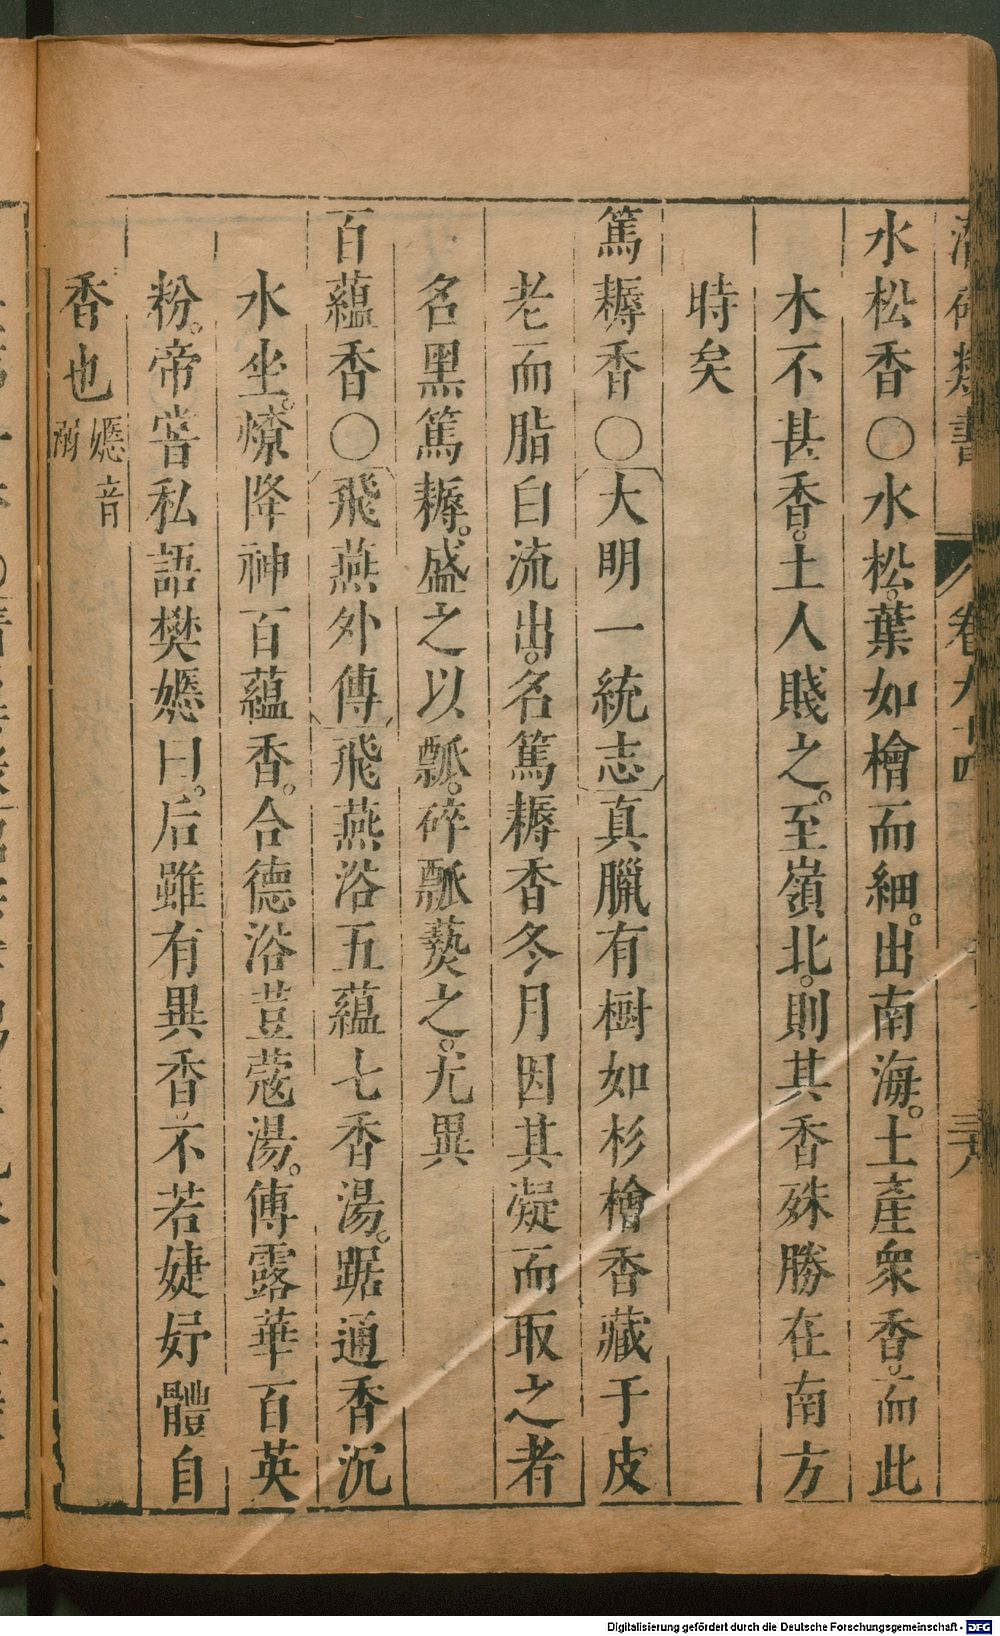 潛確類書 卷九十四
水松香〇水松。葉如檜而細。出南海。土產衆香。而此
木不甚香。土人賤之。至嶺北。則其香殊勝在南方
時矣
篤耨香〇大明一統志真臘有樹如杉檜香藏于皮
老而脂自流出。名篤耨香冬月因其凝而取之者
名黑篤耨。盛之以瓢。碎瓢爇之。尤異
百蘊香〇飛燕外傳飛燕浴五蘊七香湯。踞通香沉
水坐。燎降神百蘊香。合德浴荳蔻湯。傅露華百英
粉。帝嘗私語樊嫕曰。后雖有異香不若婕妤體自
香也嫕音
Digitalisierung gefördert durch die Deutsche Forschungsgemeinschaft - DFG